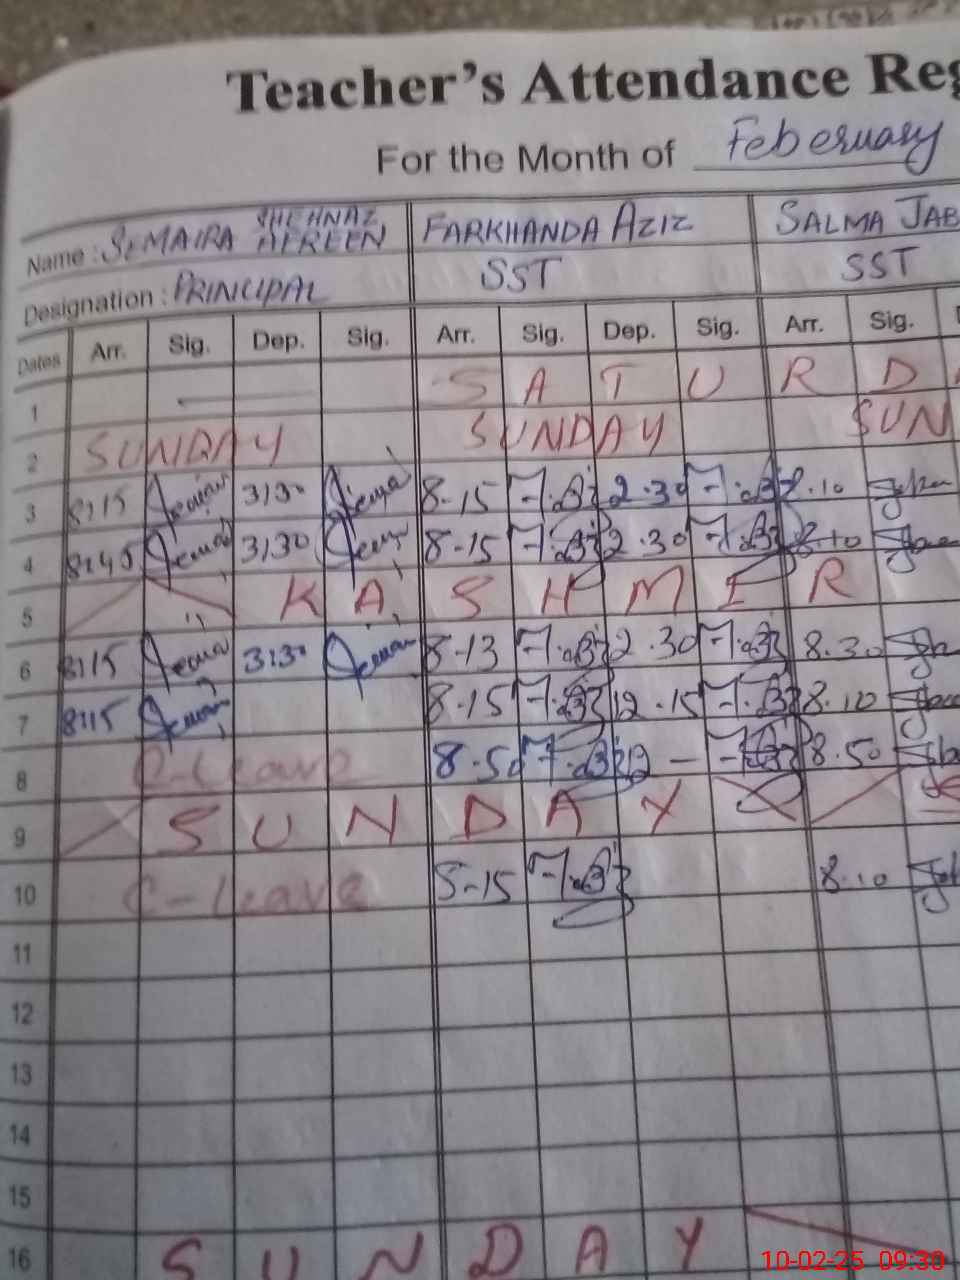 Teacher's Attendance Reg
For the Month of Feberuary
Name : SEMAIRA SHEHNAZ AFREEN FARKHANDA AZIZ SALMA JAB
Designation : PRINCIPAL SST SST
Dates Arr. Sig. Dep. Sig. Arr. Sig. Dep. Sig. Arr. Sig. D
1 — S A T U R D
2 SUNDAY SUNDAY SUN
3 8:15 3:30 8-15 2.30 8.10
4 8:45 3:30 8-15 2.30 8.10
5 K A S H M I R
6 8:15 3:30 8-13 2.30 8.30
7 8:15 8.15 12.15 8.10
8 C-Leave 8.50 12 — 8.50
9 S U N D A Y
10 C-Leave -15 8.10
11
12
13
14
15
16 S U N D A Y
10-02-25 09:30